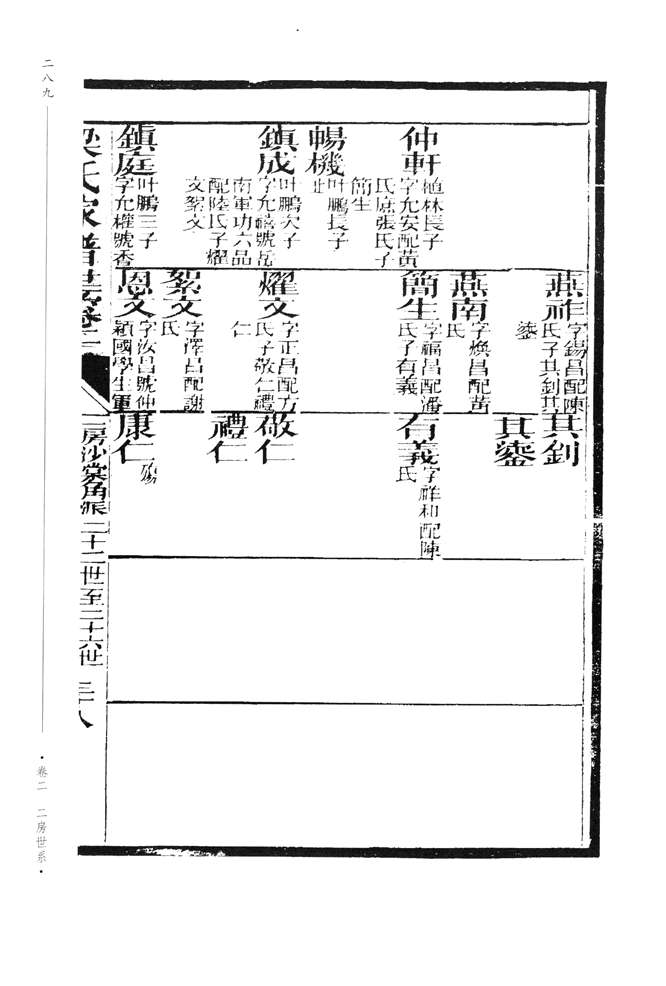 仲軒
植林長子
字允安配黃
氏庶張氏子
簡生
暢機
叶鵬長子
止
鎮成
叶鵬次子
字允禧號岳
南軍功六品
配陸氏子耀
文絮文
鎮庭
叶鵬三子
字允權號香
燕祚
字錫昌配陳
氏子其釗其
鎏
燕南
字煥昌配黃
氏
簡生
字福昌配潘
氏子有義
耀文
字正昌配方
氏子敬仁禮
仁
絮文
字澤昌配謝
氏
恩文
字汝昌號仲
穎國學生軍
其釗
其鎏
有義
字祥和配陳
氏
敬仁
禮仁
康仁
殤
梁氏家譜世系卷二
二房沙棠角派二十二世至二十六世
三十八
二八九
·卷二 二房世系·